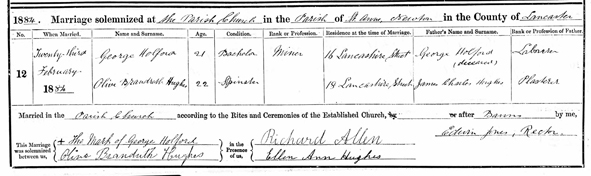 1884. Marriage solemnized at the Parish Church in the Parish of St Anne, Newton in the County of Lancaster
No. When Married. Name and Surname. Age. Condition. Rank or Profession. Residence at the time of Marriage. Father's Name and Surname. Rank or Profession of Father.
12 Twenty third February 1884 George Holford 21 Bachelor Miner 16 Lancashire Street George Holford (deceased) Labourer
Olive Brandruth Hughes 22 Spinster 18 Lancashire Street James Charles Hughes Plasterer
Married in the Parish Church according to the Rites and Ceremonies of the Established Church, by or after Banns by me,
Edwin Jones, Rector
This Marriage was solemnized between us, + The Mark of George Holford in the Presence of us, Richard Allen
Olive Brandruth Hughes Ellen Ann Hughes